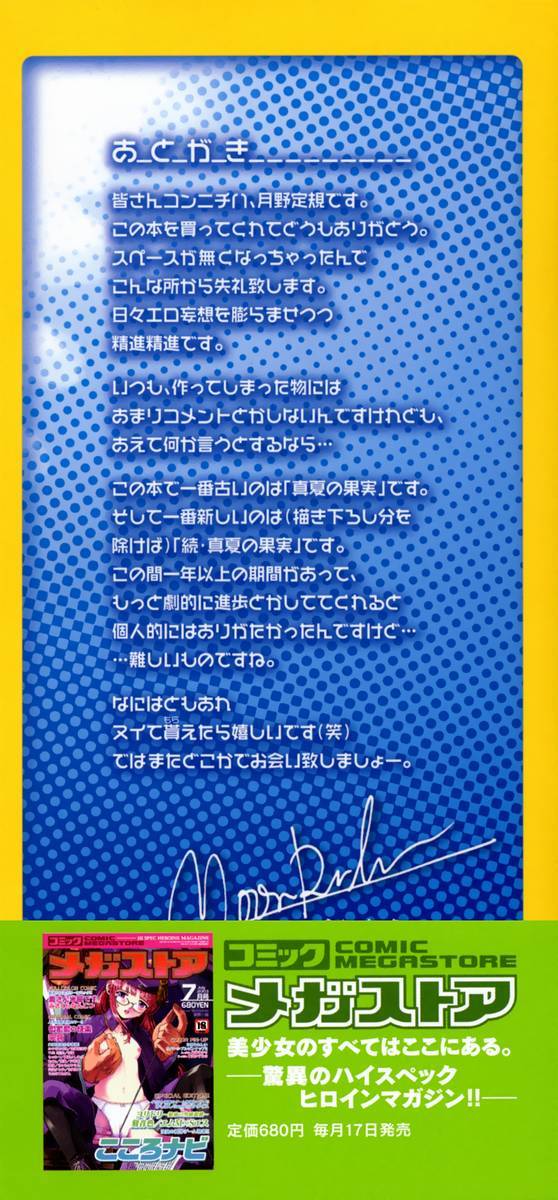 あ_と_が_き_________
皆さんコンニチハ、月野定規です。
この本を買ってくれてどうもありがとう。
スペースが無くなっちゃったんで
こんな所から失礼致します。
日々エロ妄想を膨らませつつ
精進精進です。
いつも、作ってしまった物には
あまりコメントとかしないんですけれども、
あえて何か言うとするなら…
この本で一番古いのは「真夏の果実」です。
そして一番新しいのは(描き下ろし分を
除けば)「続・真夏の果実」です。
この間一年以上の期間があって、
もっと劇的に進歩とかしててくれると
個人的にはありがたかったんですけど…
…難しいものですね。
なにはともあれ
ヌイて貰えたら嬉しいです(笑)
もら
ではまたどこかでお会い致しましょー。
コミック
COMIC
MEGASTORE
メガストア
7月号
680YEN
18
こころナビ
コミック
COMIC
MEGASTORE
メガストア
美少女のすべてはここにある。
──驚異のハイスペック
ヒロインマガジン!!──
定価680円 毎月17日発売